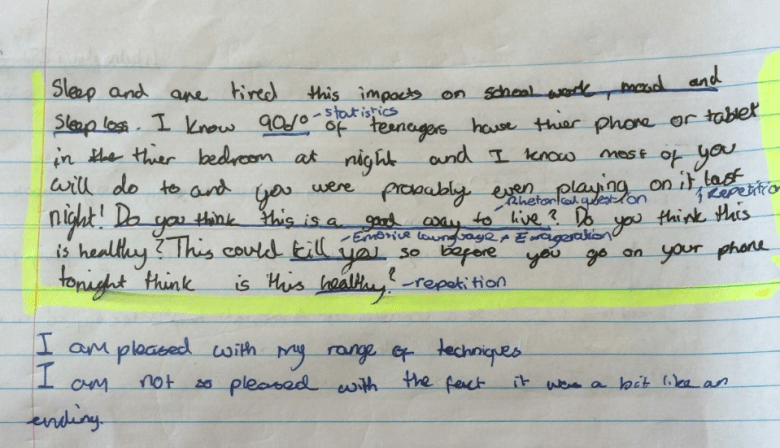 Sleep and are tired this impacts on school work, mood and
sleep loss. I know 90% - statistics of teenagers have thier phone or tablet
in the thier bedroom at night and I know most of you
will do to and you were probably even playing on it last
- Rhetorical question Repetition
night! Do you think this is a good way to live? Do you think this
- Emotive launguage + Exageration
is healthy? This could kill you so before you go on your phone
tonight think is this healthy? - repetition
I am pleased with my range of techniques
I am not so pleased with the fact it was a bit like an
ending.